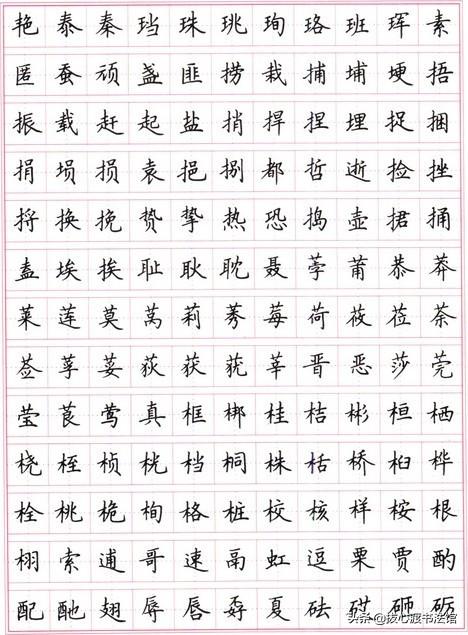 艳泰秦珰珠珧珣珞班珲素
匿蚕顽盏匪捞栽捕埔埂捂
振载赶起盐捎捍捏埋捉捆
捐埙损袁挹捌都哲逝捡挫
捋换挽贽挚热恐捣壶捃捅
盍埃挨耻耿耽聂荸莆恭莽
莱莲莫莴莉莠莓荷莜莅荼
莶莩荽荻莸莸莘晋恶莎莞
莹莨莺真框梆桂桔彬桓栖
桡桎桢桄档桐株栝桥桕桦
栓桃桅栒格桩校核样桉根
栩索逋哥速鬲虹逗栗贾酌
配酏翅辱唇孬夏砝砹砸砺
头条 @拔心渡书法馆